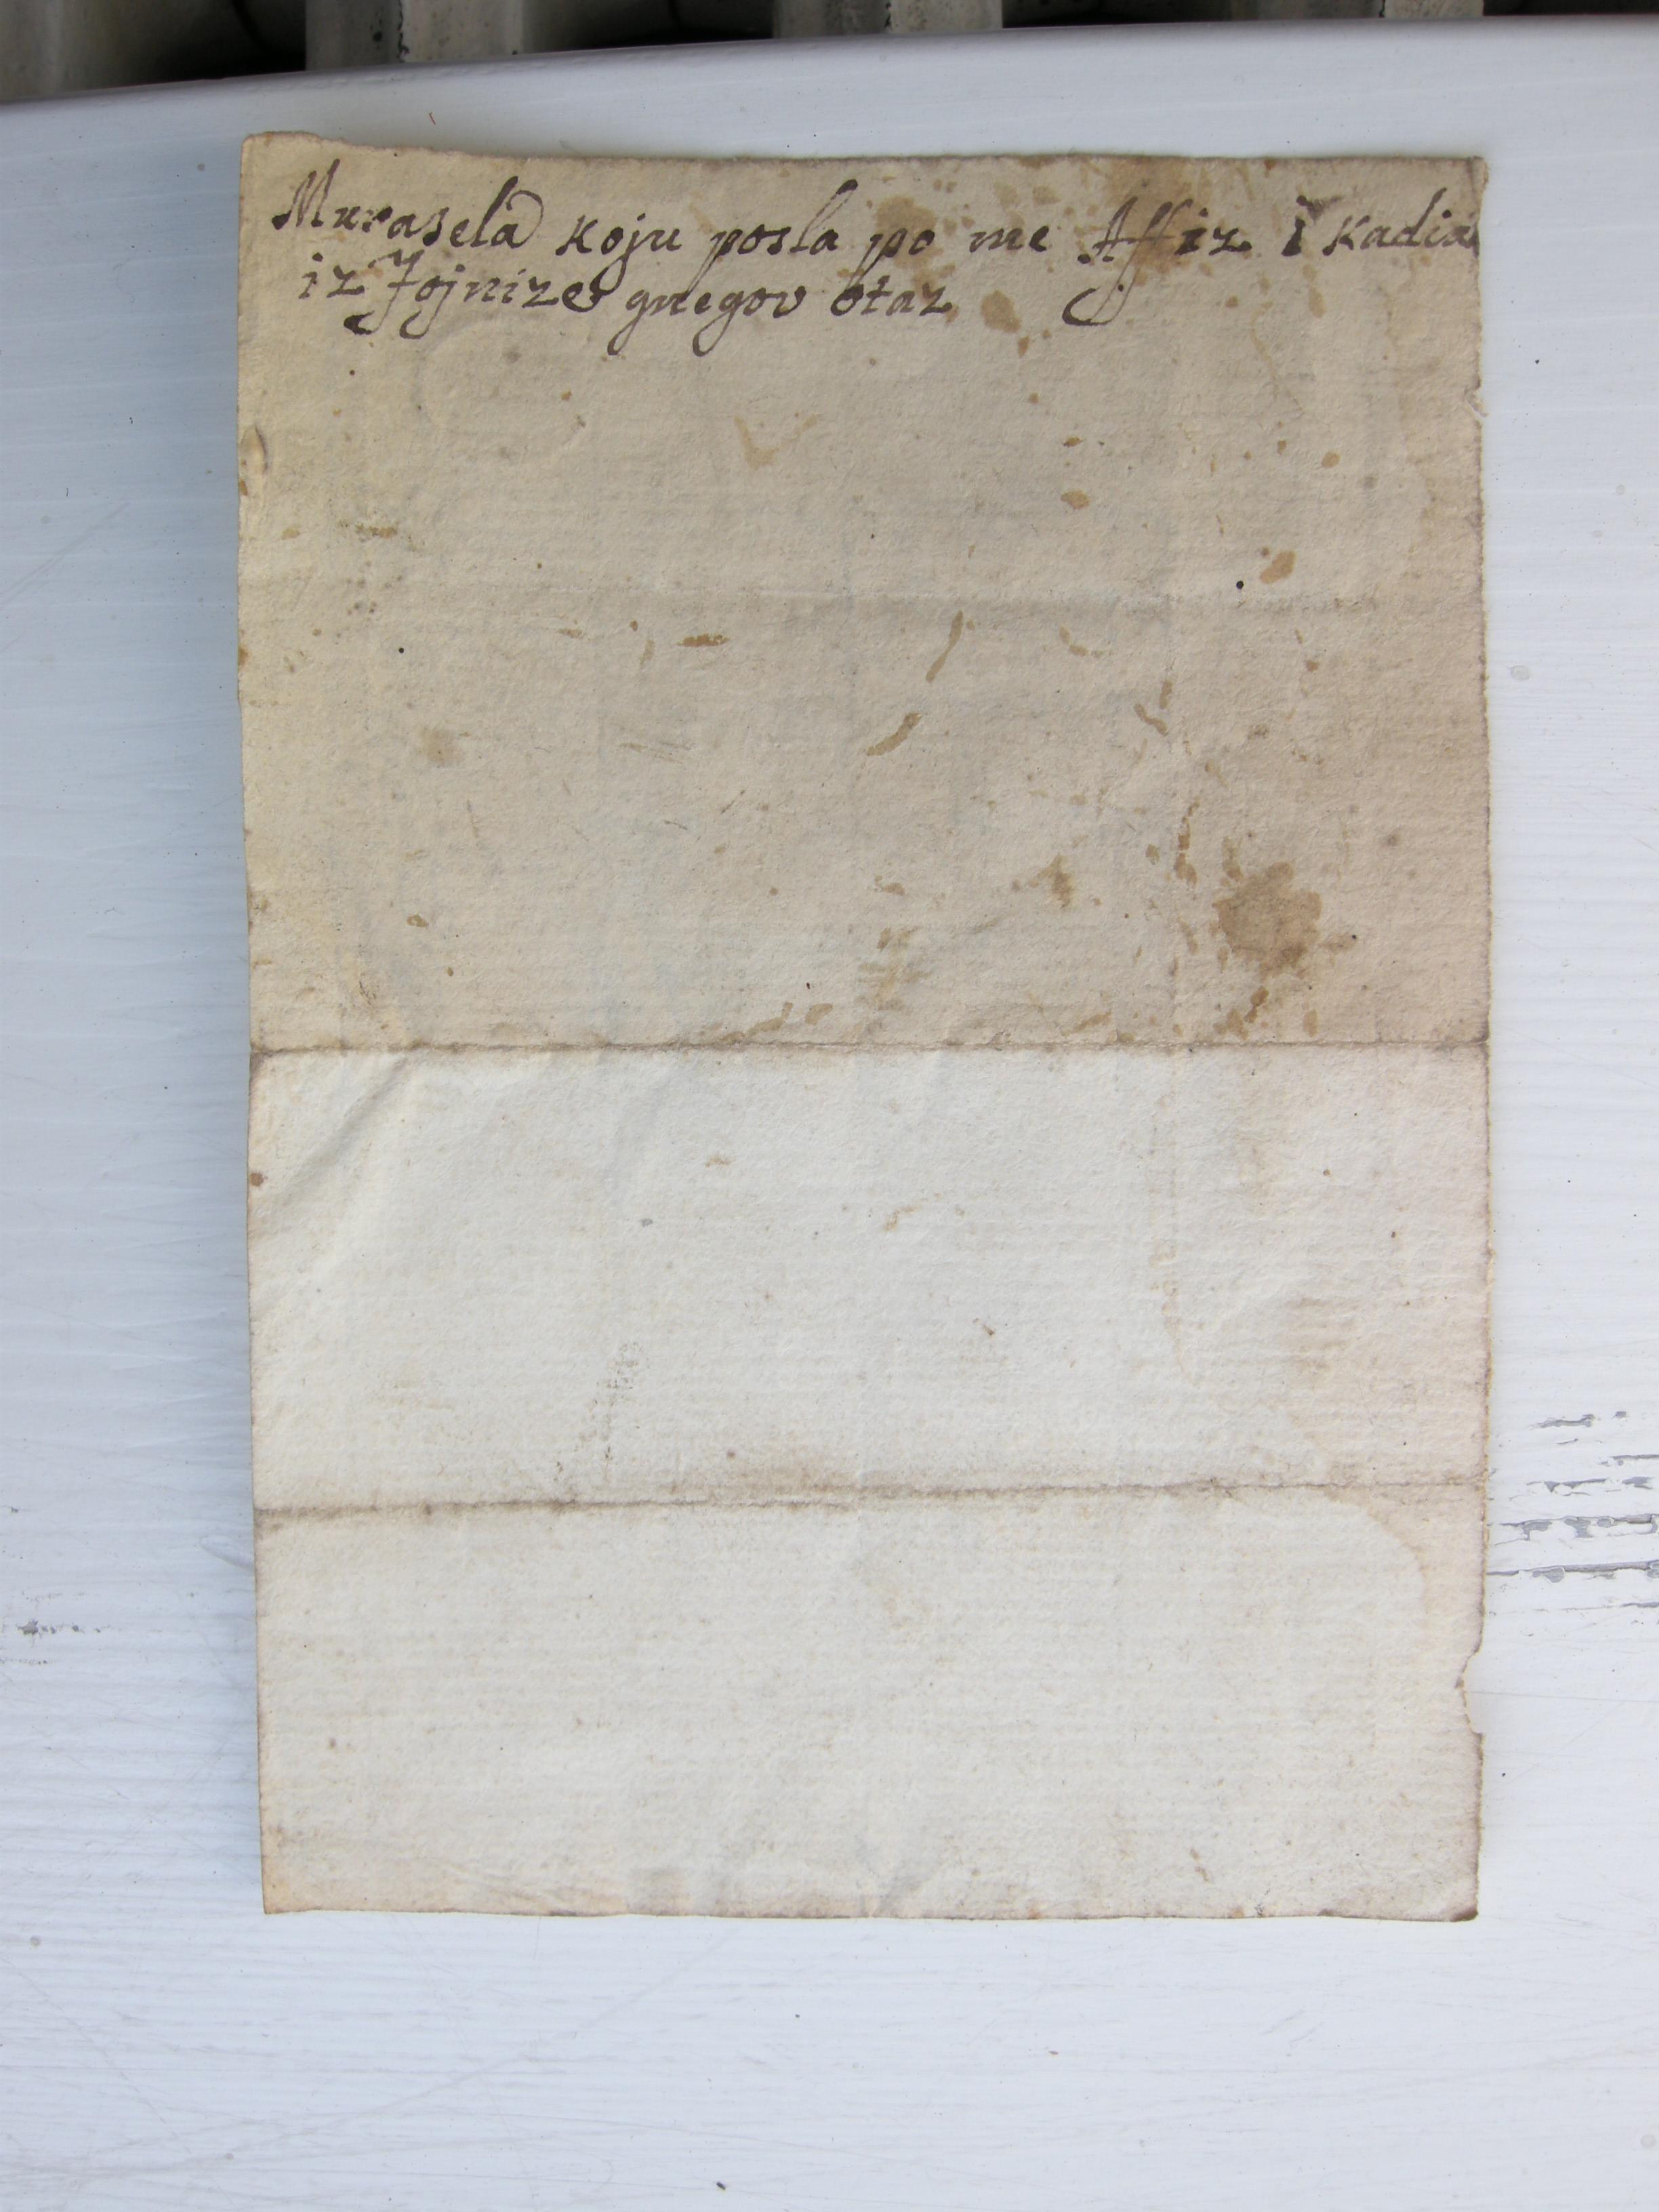 Murasela koju posla po me Affiz i kadia
iz Fojnize gnegov otaz